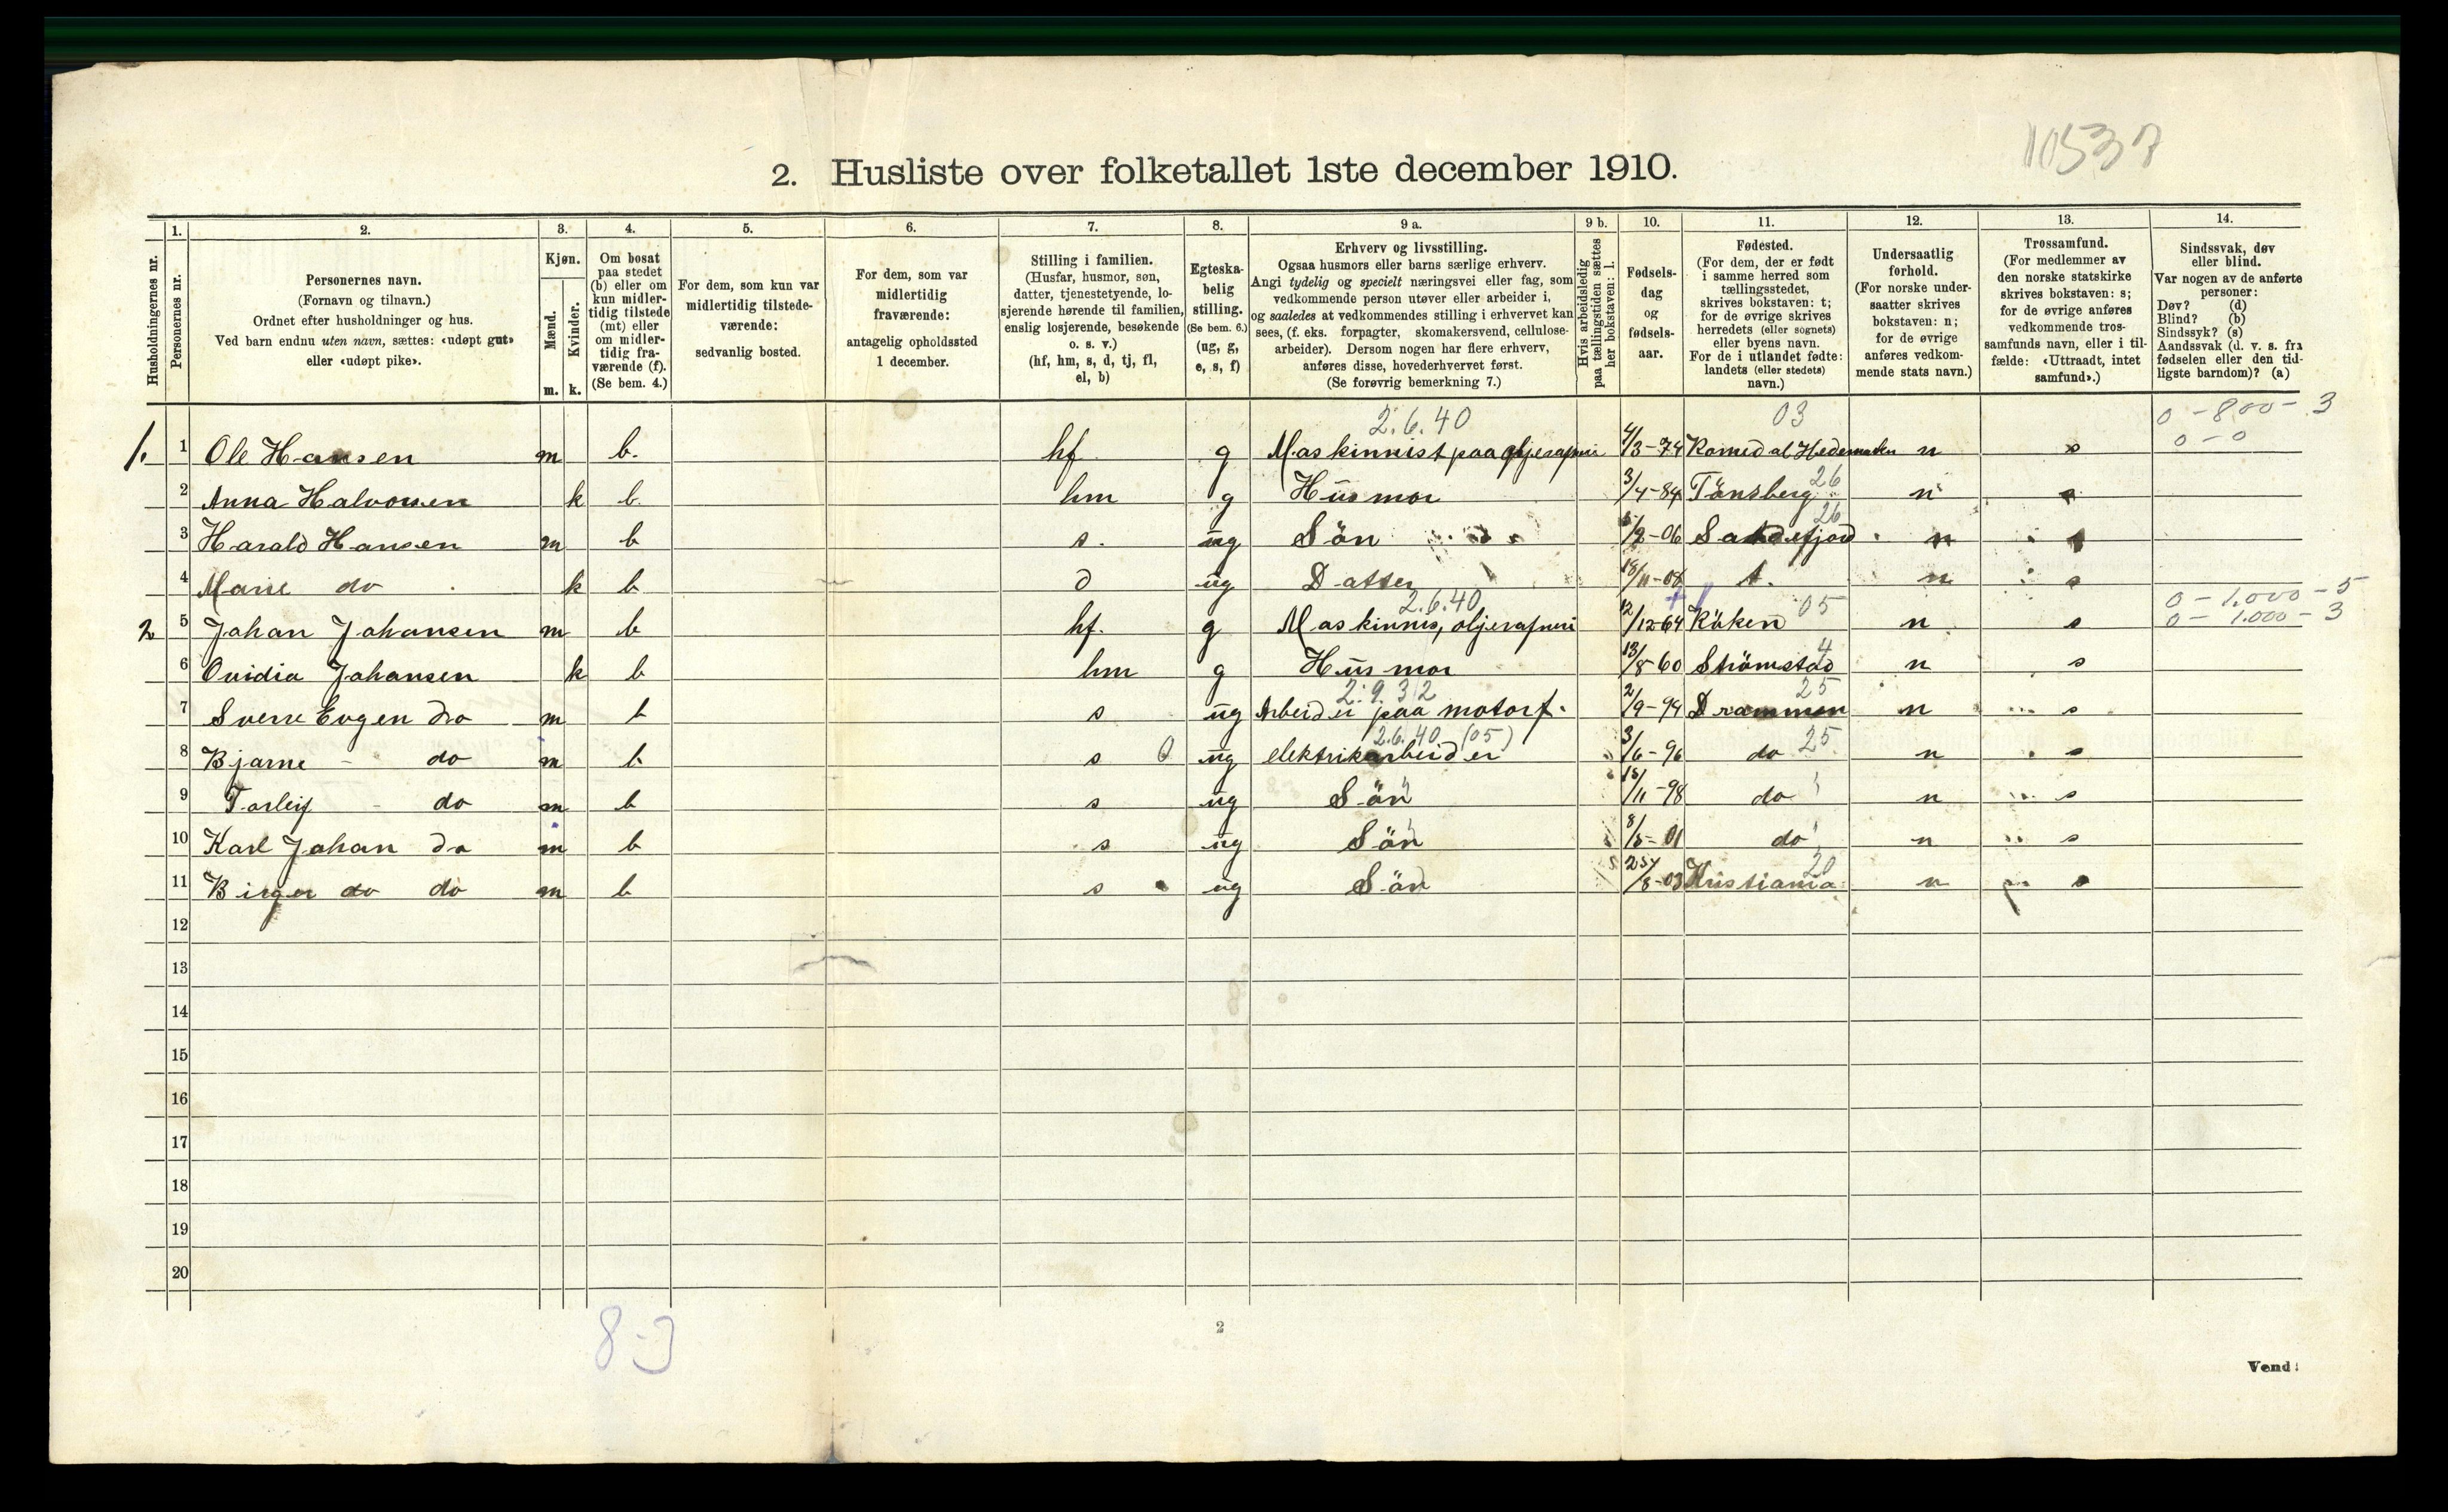 10537
2. Husliste over folketallet 1ste december 1910.
Husholdningernes nr.
1.
Personernes nr.
2.
Personernes navn.
(Fornavn og tilnavn.)
Ordnet efter husholdninger og hus.
Ved barn endnu uten navn, sættes: «udøpt gut»
eller «udøpt pike».
3.
Kjøn.
Mænd.
Kvinder.
m. k.
4.
Om bosat
paa stedet
(b) eller om
kun midler-
tidig tilstede
(mt) eller
om midler-
tidig fra-
værende (f).
(Se bem. 4.)
5.
For dem, som kun var
midlertidig tilstede-
værende:
sedvanlig bosted.
6.
For dem, som var
midlertidig
fraværende:
antagelig opholdssted
1 december.
7.
Stilling i familien.
(Husfar, husmor, søn,
datter, tjenestetyende, lo-
sjerende hørende til familien,
enslig losjerende, besøkende
o. s. v.)
(hf, hm, s, d, tj, fl,
el, b)
8.
Egteska-
belig
stilling.
(Se bem. 6.)
(ug, g,
e, s, f)
9 a.
Erhverv og livsstilling.
Ogsaa husmors eller barns særlige erhverv.
Angi tydelig og specielt næringsvei eller fag, som
vedkommende person utøver eller arbeider i,
og saaledes at vedkommendes stilling i erhvervet kan
sees, (f. eks. forpagter, skomakersvend, cellulose-
arbeider). Dersom nogen har flere erhverv,
anføres disse, hovederhvervet først.
(Se forøvrig bemerkning 7.)
9 b.
Hvis arbeidsledig
paa tællingstiden sættes
her bokstaven: l.
10.
Fødsels-
dag
og
fødsels-
aar.
11.
Fødested.
(For dem, der er født
i samme herred som
tællingsstedet,
skrives bokstaven: t;
for de øvrige skrives
herredets (eller sognets)
eller byens navn.
For de i utlandet fødte:
landets (eller stedets)
navn.)
12.
Undersaatlig
forhold.
(For norske under-
saatter skrives
bokstaven: n;
for de øvrige
anføres vedkom-
mende stats navn.)
13.
Trossamfund.
(For medlemmer av
den norske statskirke
skrives bokstaven: s;
for de øvrige anføres
vedkommende tros-
samfunds navn, eller i til-
fælde: «Uttraadt, intet
samfund».)
14.
Sindssvak, døv
eller blind.
Var nogen av de anførte
personer:
Døv? (d)
Blind? (b)
Sindssyk? (s)
Aandssvak (d. v. s. fra
fødselen eller den tid-
ligste barndom)? (a)
2.6.40 03 0 - 800 - 3
1. 1 Ole Hansen m b. hf g Maskinnist paa 4/3-74 Romedal Hedemarken n s 0 - 0
2 Anna Halvorsen k b. hm g Husmor 3/4-84 Tönsberg 26 n s
3 Harald Hansen m b s. ug Sön 06 Sandefjord 26 n s
4 Marie do k b d ug Datter 18/11-08 t. n s
2.6.40 0 - 1.000 - 5
2 5 Johan Johansen m b hf. g 12/12 64 Röken 05 n s 0 - 1.000 - 3
6 Ovidia Johansen k b hm g Husmor 13/8 60 Strömstad 4 n s
2.9.32 25
7 Sverre Eugen do m b s ug Arbeider paa motorf. 2/9-94 Drammen n s
2.6.40 (05)
8 Bjarne - do m b s 0 ug elektrikarbeider 3/6-96 do 25 n s
9 Torleif - do m b s ug Sön /11-98 do n s
10 Karl Johan do m b s ug Sön 01 do n s
11 Birger do do m b s ug Sön 25/8-03 Kristiania 20 n s
12
13
14
15
16
17
18
19
20
8-3
2
Vend!